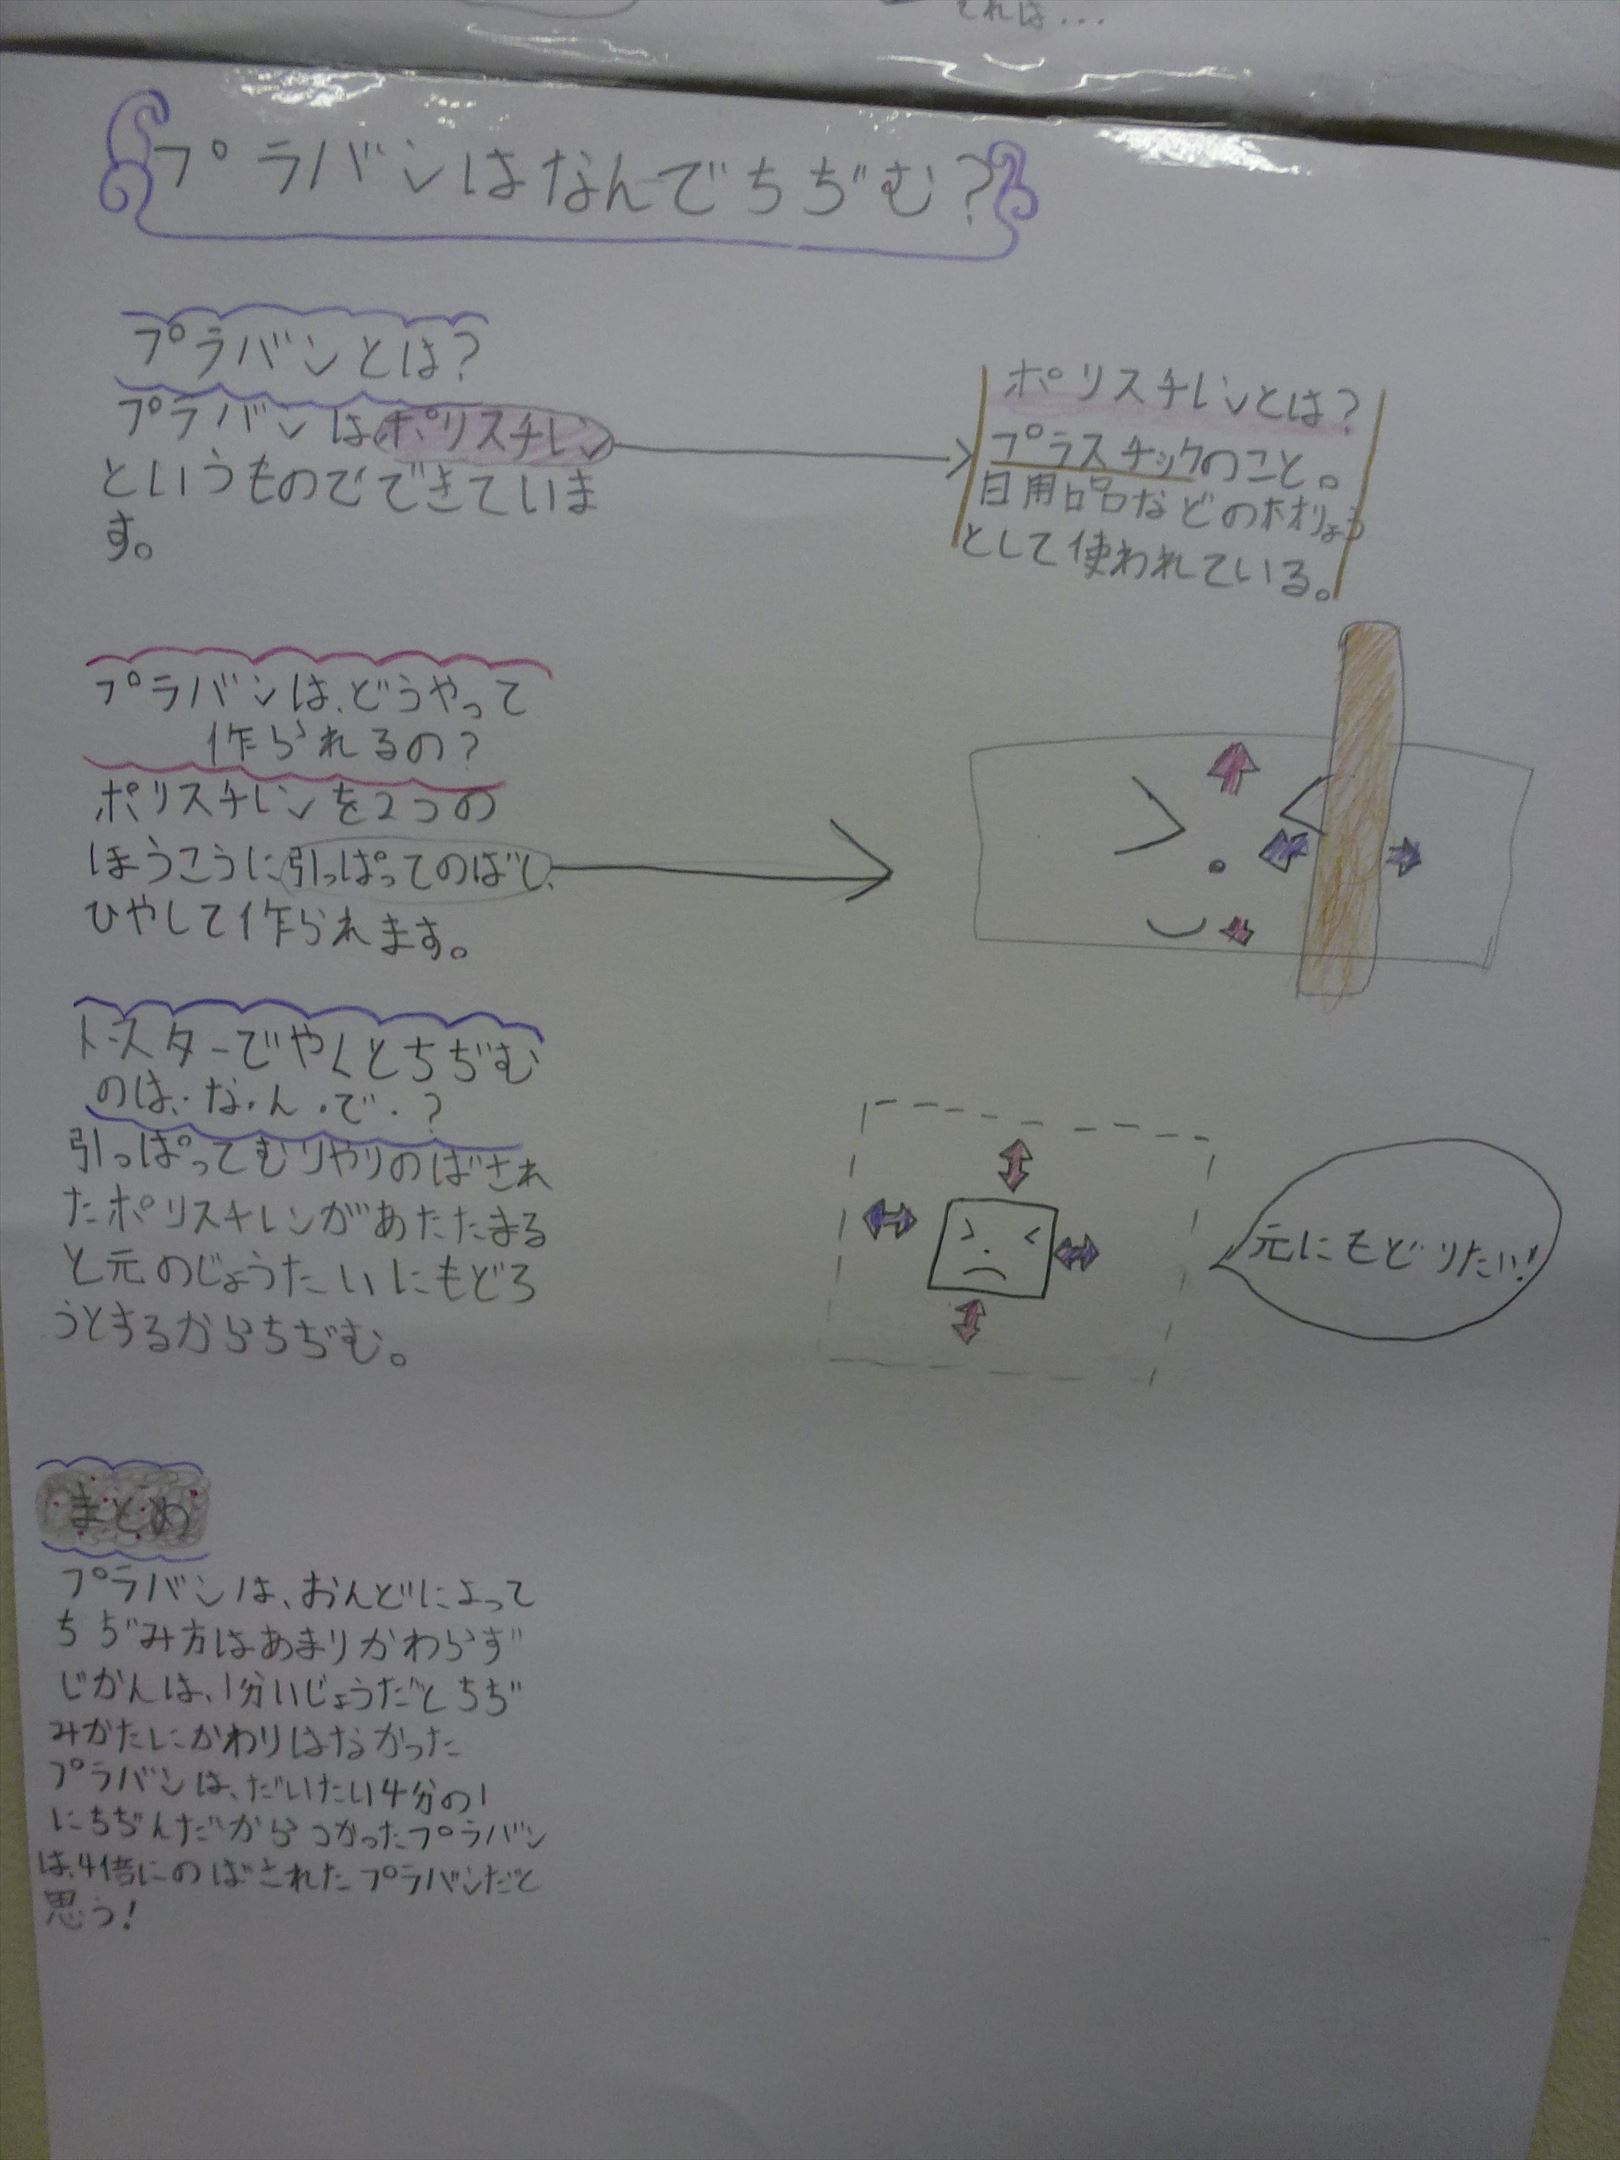 それは...
プラバンはなんでちぢむ?
プラバンとは?
プラバンはポリスチレン
というものでできていま
す。
ポリスチレンとは?
プラスチックのこと。
日用品などの材りょう
として使われている。
プラバンは、どうやって
作られるの?
ポリスチレンを2つの
ほうこうに引っぱってのばし、
ひやして作られます。
トースターでやくとちぢむ
のは・な・ん・で・?
引っぱってむりやりのばされ
たポリスチレンがあたたまる
と元のじょうたいにもどろ
うとするからちぢむ。
元にもどりたい!
まとめ
プラバンは、おんどによって
ちぢみ方はあまりかわらず
じかんは、1分いじょうだとちぢ
みかたにかわりはなかった
プラバンは、だいたい4分の1
にちぢんだからつかったプラバン
は、4倍にのばされたプラバンだと
思う!